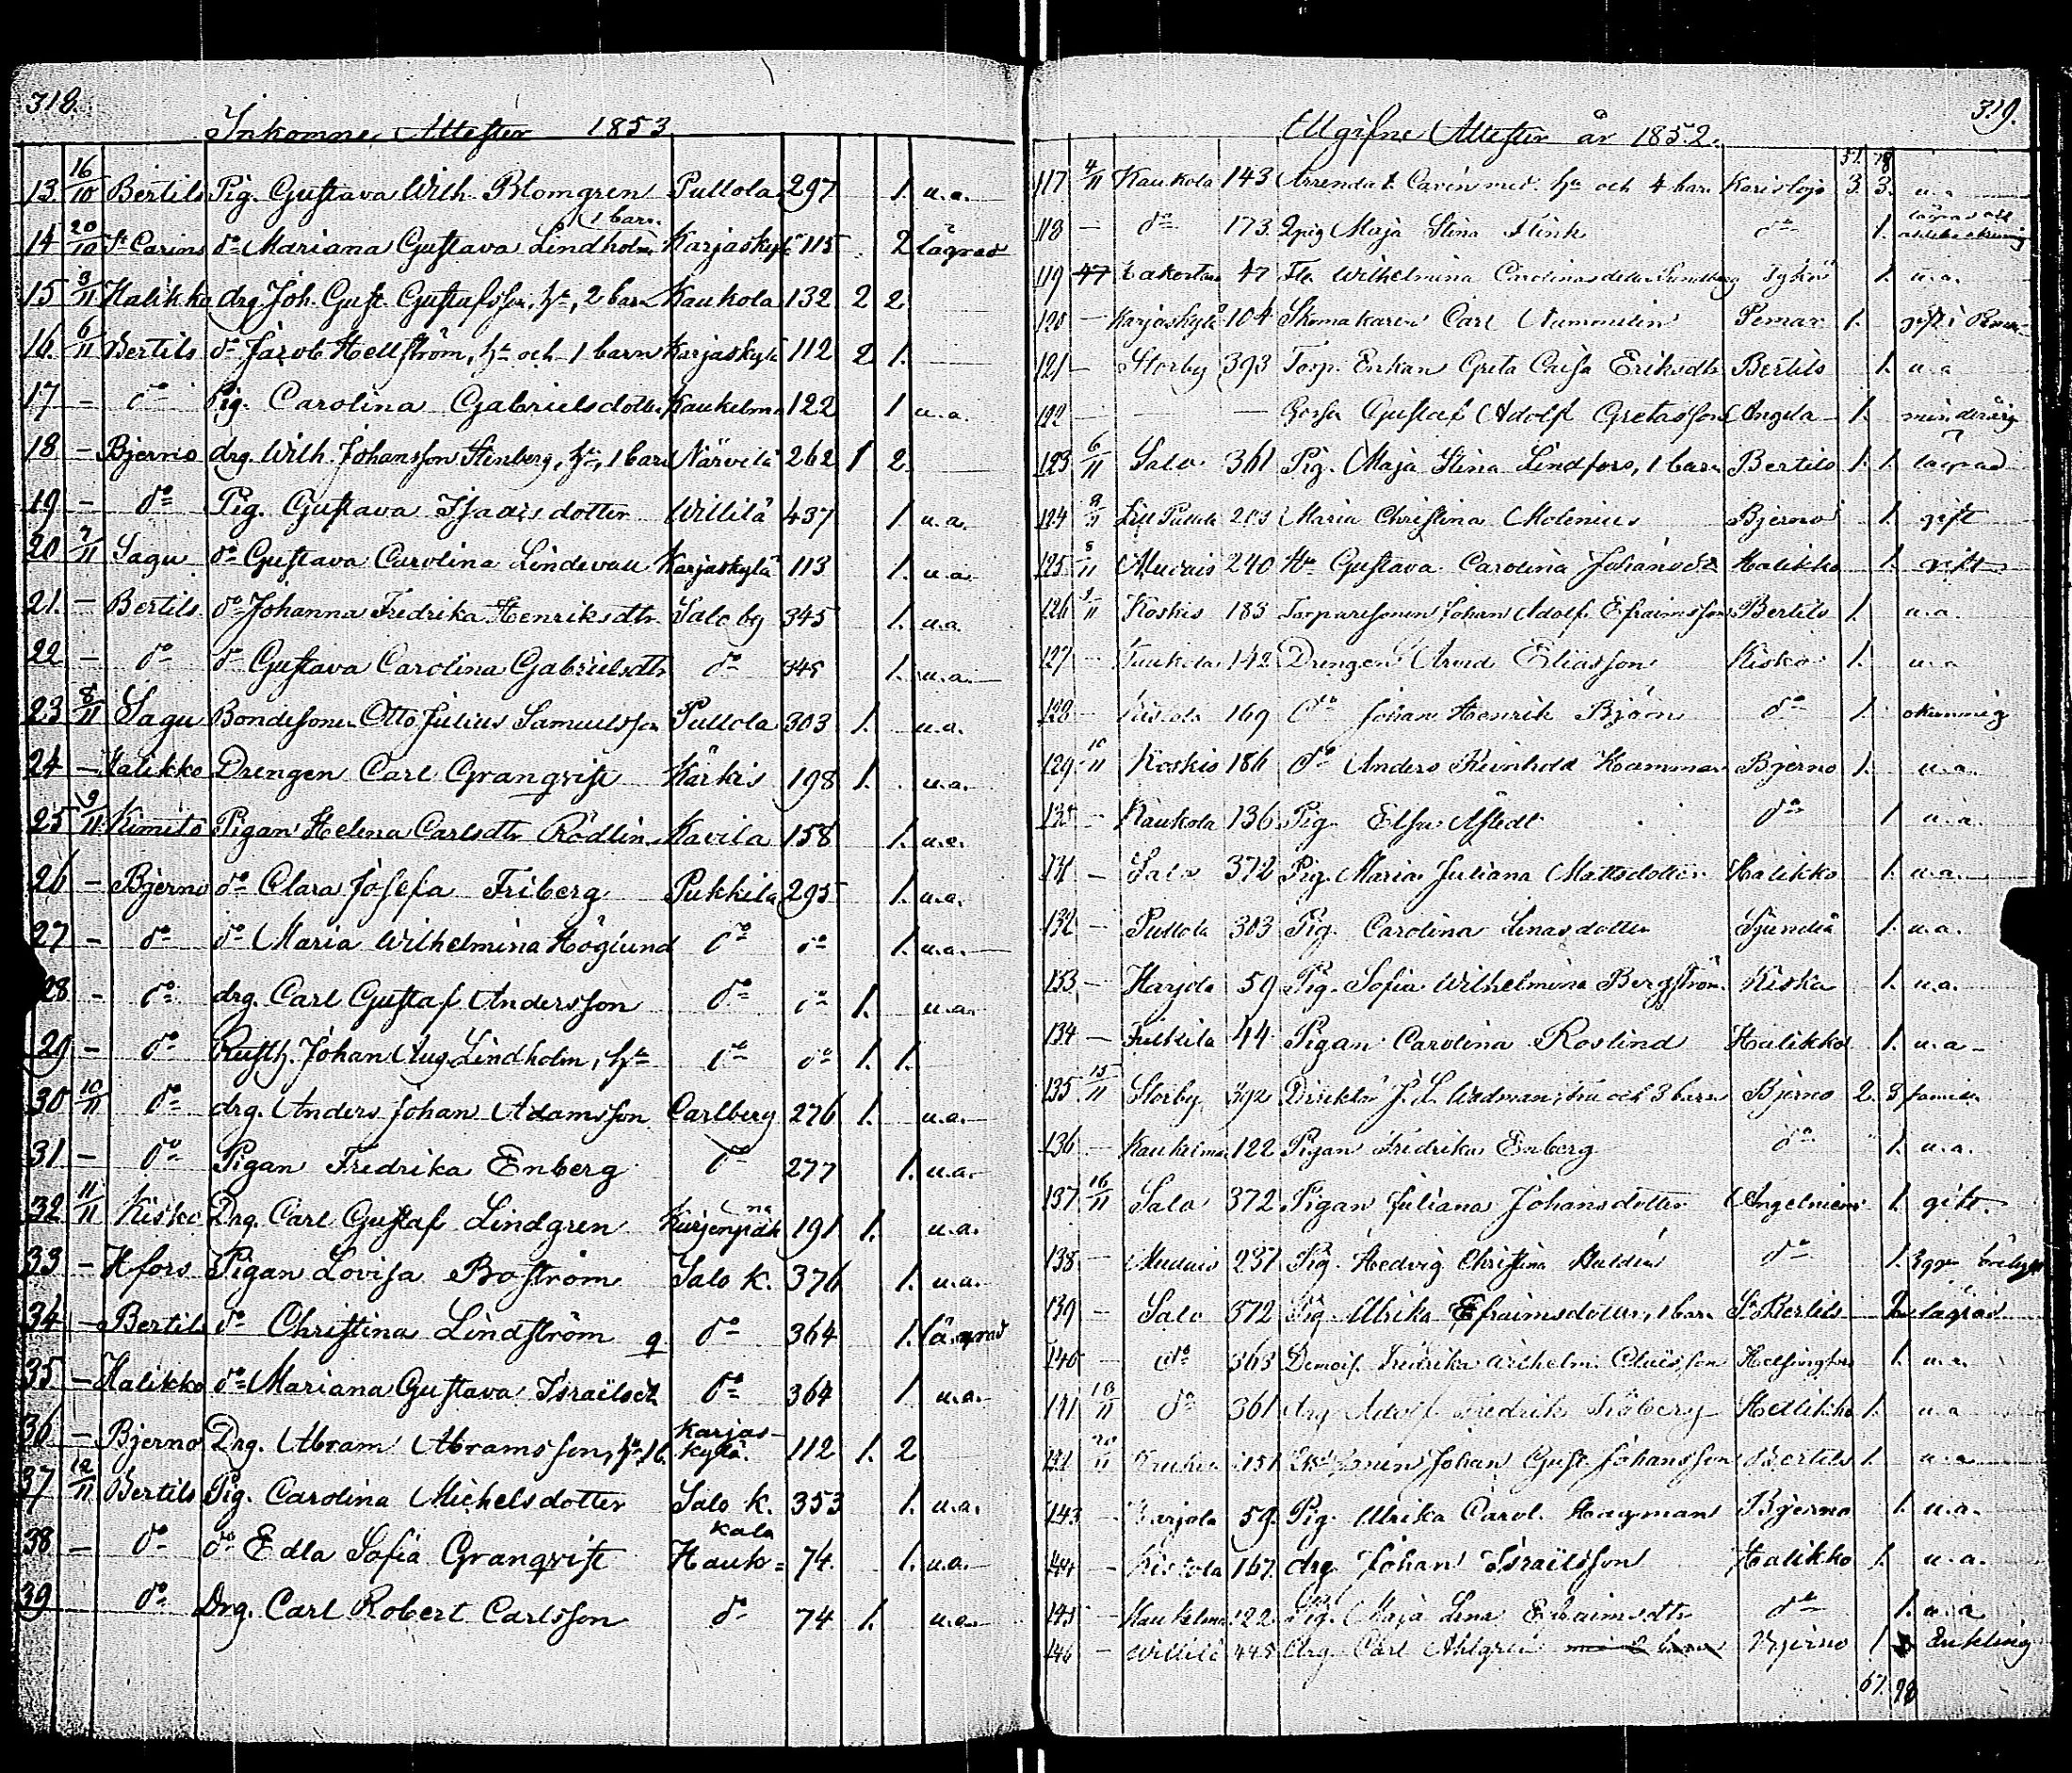 318.
Inkomne Attester 1853
13. 16/10 Bertils Pig. Gustava Wilh. Blomgren Pullola 297 1. u.a.
1 barn
14 20/10 St Carins do Mariana Gustava Lindholm Karjaskylä 115 2 lägrad
15 3/11 Halikko drg. Joh. Gust. Gustafsson, hu, 2 barn Kaukola 132 2 2
16. 6/11 Bertils do Jacob Hellström, hu och 1 barn Karjaskylä 112 2 1.
17 - do Pig. Carolina Gabrielsdotter Kaukelma 122 1 u.a.
18 - Bjerno drg. Wilh. Johansson Stenberg, hu, 1 barn Närvilä 262 1 2
19 - do Pig. Gustava Isaacsdotter Willilä 437 1 u.a.
20 7/11 Sagu do Gustava Carolina Lindevall Karjaskylä 113 1. u.a.
21. - Bertils do Johanna Fredrika Henriksdtr Salo by 345 1. u.a.
22 - do do Gustava Carolina Gabrielsdtr do 345 1. u.a.
23 8/11 Sagu Bondesonen Otto Julius Samuelsson Pullola 303 1. u.a.
24 - Halikko Drengen Carl Granqvist Kärkis 198 1. u.a.
25 9/11 Kimito Pigan Helena Carlsdtr Rödlin Kavila 158 1. u.a.
26 - Bjerno do Clara Josefa Friberg Pukkila 295 1. u.a.
27 - do do Maria Wilhelmina Höglund do do 1. u.a.
28 - do drg. Carl Gustaf Andersson do do 1. u.a.
29 - do Rusth. Johan Aug. Lindholm, hu do do 1. 1.
30 10/11 do drg. Anders Johan Adamsson Carlberg 276 1. u.a.
31 - do Pigan Fredrika Enberg do 277 1. u.a.
32 11/11 Kisko Drg. Carl Gustaf Lindgren Kurjenpäh 191 1. u.a.
33 - Hfors Pigan Lovisa Boström Salo k. 376 1. u.a.
34 - Bertils do Christina Lindström do 364 1. lägrad
35 - Halikko do Mariana Gustava Israëlsdt do 364 1 u.a.
36 - Bjerno Drg. Abram Abramsson, hu 1 b. Karjas-kylä. 112 1. 2
37 12/11 Bertils Pig. Carolina Michelsdotter Salo k. 353 1. u.a.
38 - do do Edla Sofia Granqvist Haukkala 74. 1. u.a.
39 do Drg. Carl Robert Carlsson do 74 1. u.a.
319.
Utgifne Attester år 1852.
51. 78
117 4/11 Kaukola 143 Arrendat. Carén med hu och 4 barn Karislojo 3. 3. u.a.
118 - do 173 Qpig Maja Stina Flink do 1.
119 47 47 Wilhelmina Carolinasdotter Sundberg 1. u.a.
120 - Karjaskylä 104 Skomakaren Carl Nummelin Pemar 1. gift i Pemar
121 - Storby 393 Torp. Enkan Greta Caisa Eriksdtr Bertils 1. u.a
122 - - Gossen Gustaf Adolf Gretasson Angela 1. minderårig
123 6/11 Salo 361 Pig. Maja Stina Lindfors, 1 barn Bertils 1. 1. lägrad
124 Pullola 203 Maria Christina Molenius Bjerno 1. gift
125 8/11 Muurais 240 Hu Gustava Carolina Johansdt Halikko 1. gift
126 9/11 Koskis 183 Torparesonen Johan Adolf Efraimsson Bertils 1. u.a.
127 - Kaukola 142 Drengen Arvid Eliasson Kisko 1. u.a
128 - Kiskola 169 do Johan Henrik Björn do 1. okunnig
129 10/11 Koskis 186 do Anders Reinhold Hammar Bjerno 1. u.a.
135 - Kaukola 136 Pig. Elsa Åstedt do 1 u.a.
131 - Salo 372 Pig. Maria Juliana Mattsdotter Halikko 1. u.a.
132 - Pullola 303 Pig. Carolina Linasdotter Sjundeå 1. u.a.
133 - Harjola 59 Pig. Sofia Wilhelmina Bergström Kiska 1. u.a.
134 - 44 Pigan Carolina Roslind Halikko 1. u.a -
135 15/11 Storby 392 Direktör J. L. Wadman, hu och 3 barn Bjerno 2. 3
136 - Kaukelma 122 Pigan Fredrika Enberg do 1. u.a.
137 16/11 Salo 372 Pigan Juliana Johansdotter Angelniemi 1. gift.
138 - Muurais 237 Pig. Hedvig Christina Huldén do 1.
139 - Salo 372 Pig. Ulrika Efraimsdotter, 1 barn St Bertils 2 lägrad
140 - do 363 Demois. Fredrika Wilhelm. Claësson Helsingfors 1. u.a.
141 18/11 do 361 drg Adolf Fredrik Sjöberg Halikko 1. u.a
20/11 151 Johan Gust. Johansson Bertils 1. u.a
143 - Harjola 59. Pig. Ulrika Carol. Hagman Bjerno 1. u.a.
144 - Kiskola 167 drg Johan Israëlsson Halikko 1. u.a.
145 - Kaukelma 122 Pig. Maja Lena Efraimsdtr do 1. u.a
146 - Willilä 445 drg. Carl Ahlgren Bjerno 1 Enkling
67. 98